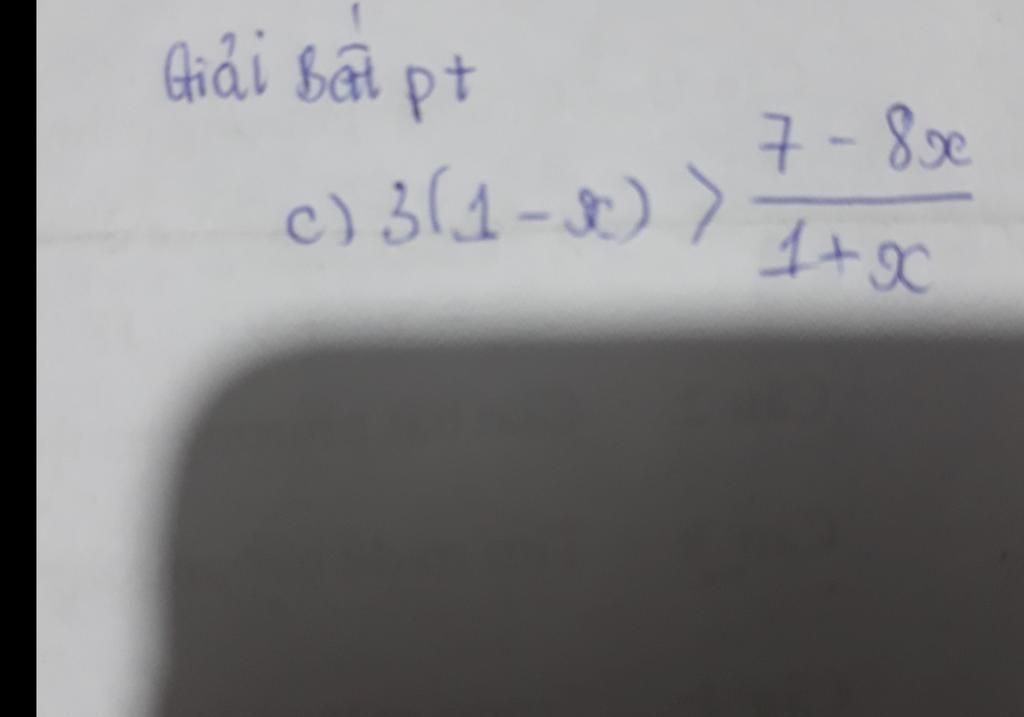 Giải Bất pt
c) 3(1 - x) > \frac{7 - 8x}{1 + x}